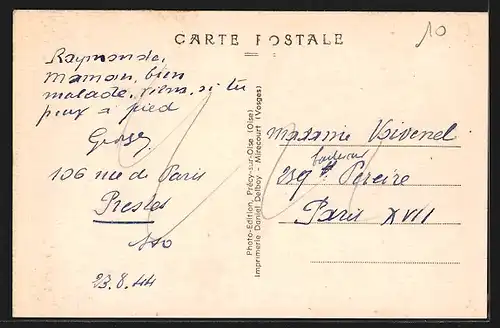 CARTE POSTALE
10
Raymonde,
maman, bien
malade, viens, si tu
peux à pied
106 rue de Paris
Presles
S/O
23.8.44
Photo-Edition, Précy-sur-Oise (Oise)
Imprimerie Daniel Delboy - Mirecourt (Vosges)
Madame Voivenel
boulevard
239 Pereire
Paris XVII